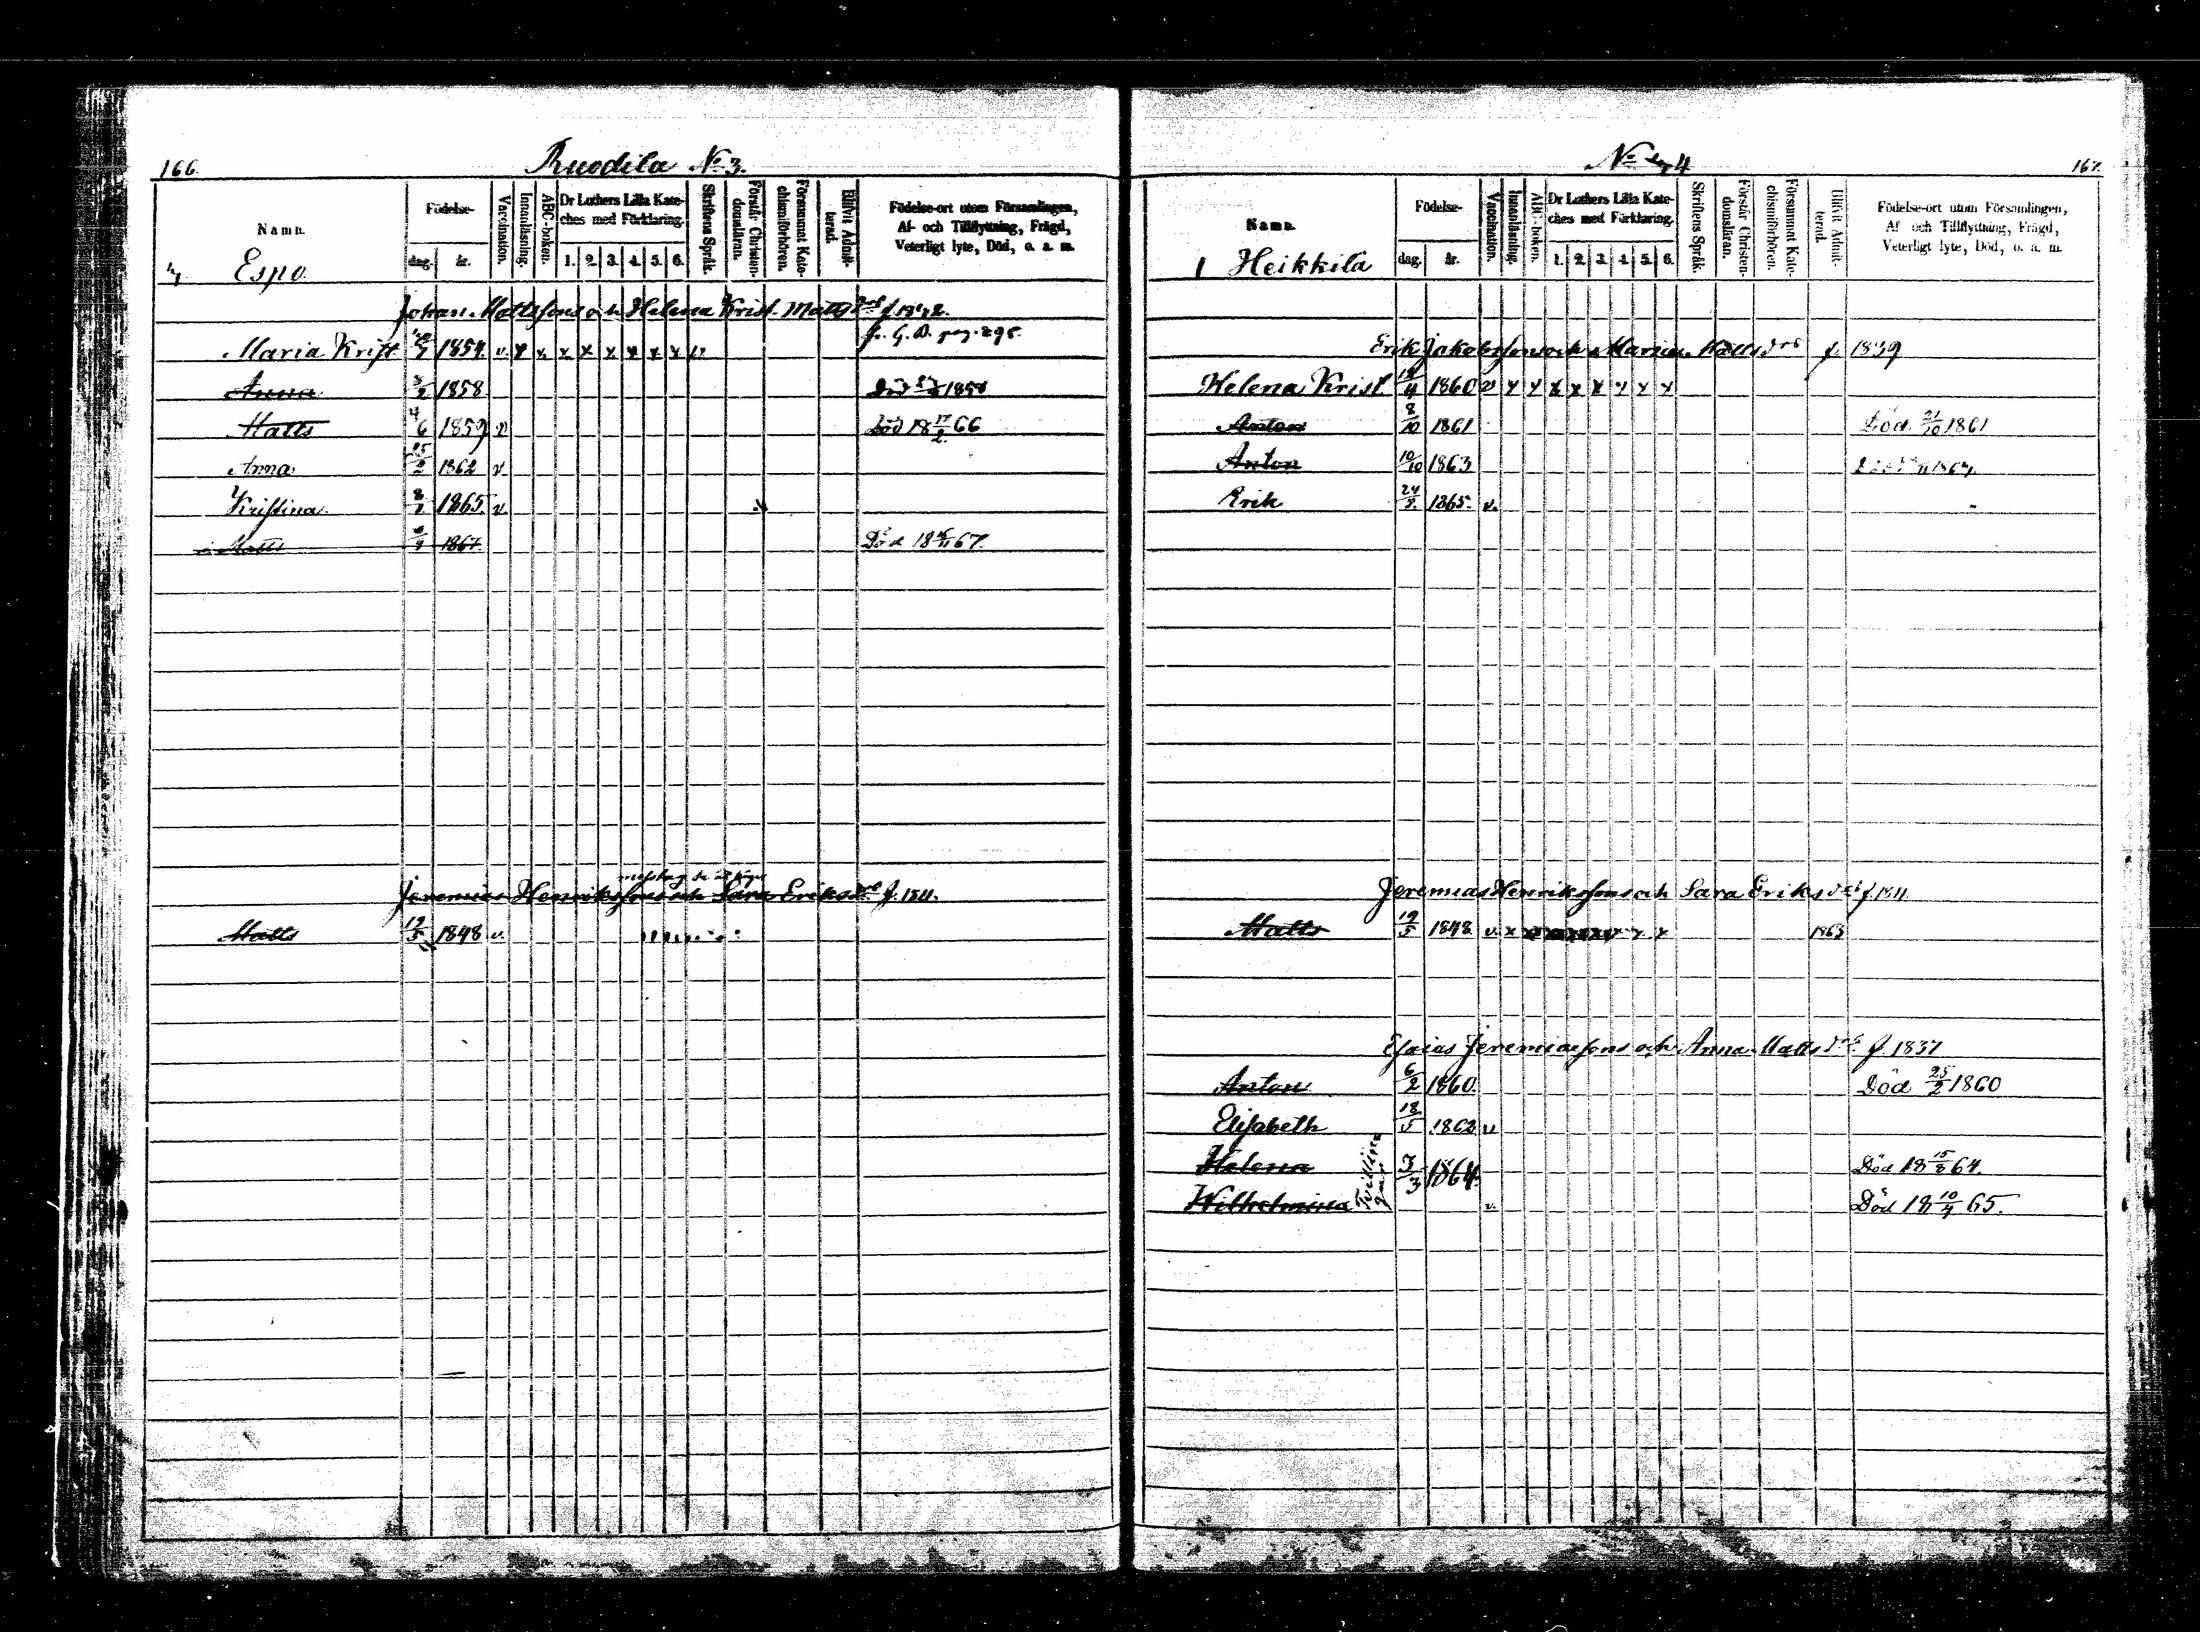 166.
Ruodila No 3.
Namn.
Födelse-
dag.
år.
Vaccination.
Innanläsning.
ABC-boken.
Dr Luthers Lilla Kate-
ches med Förklaring.
1. 2. 3. 4. 5. 6.
Skriftens Språk.
Förstår Christen-
domsläran.
Försummat Kate-
chismiförhören.
Blifvit Admit-
terad.
Födelse-ort utom Församlingen,
Af- och Tillflyttning, Frägd,
Veterligt lyte, Död, o. a. m.
Espo
Johan Mattssons och Helena Krist. Matts drs f.
Maria Krist 1854. v. x v. x x x x x x v
Anna 1858 Död
Matts 4/6 1859 v Död 18 17/2 66
Anna 1862 v
Kristina 1865. v. x
Matts 1867. Död 18 67.
Jeremias Henrikssons och Sara Eriks drs f. 1811.
Matts 19/5 1848 v.
No 4
167.
Namn.
Födelse-
dag.
år.
Vaccination.
Innanläsning.
ABC-boken.
Dr Luthers Lilla Kate-
ches med Förklaring.
1. 2. 3. 4. 5. 6.
Skriftens Språk.
Förstår Christen-
domsläran.
Försummat Kate-
chismiförhören.
Blifvit Admit-
terad.
Födelse-ort utom Församlingen,
Af och Tillflyttning, Frägd,
Veterligt lyte, Död, o. a. m.
1 Heikkilä
Erik Jakobssons och Maria Matts drs f. 1839
Helena Krist. 1860 v x x x x x x x x
Anton 8/10 1861 Död 21/10 1861
Anton 10/10 1863
Erik 1865. v.
Jeremias Henrikssons och Sara Eriks drs f. 1811.
Matts 19/5 1848 v. x x x 1863
Esaias Jeremiassons och Anna Matts drs f. 1837
Anton 6/2 1860. Död 25/2 1860
Elisabeth 18/5 1862 v
Helena Tvillingar 7/3 1864. Död 18 15/8 64.
Wilhelmina v. Död 18 10/4 65.